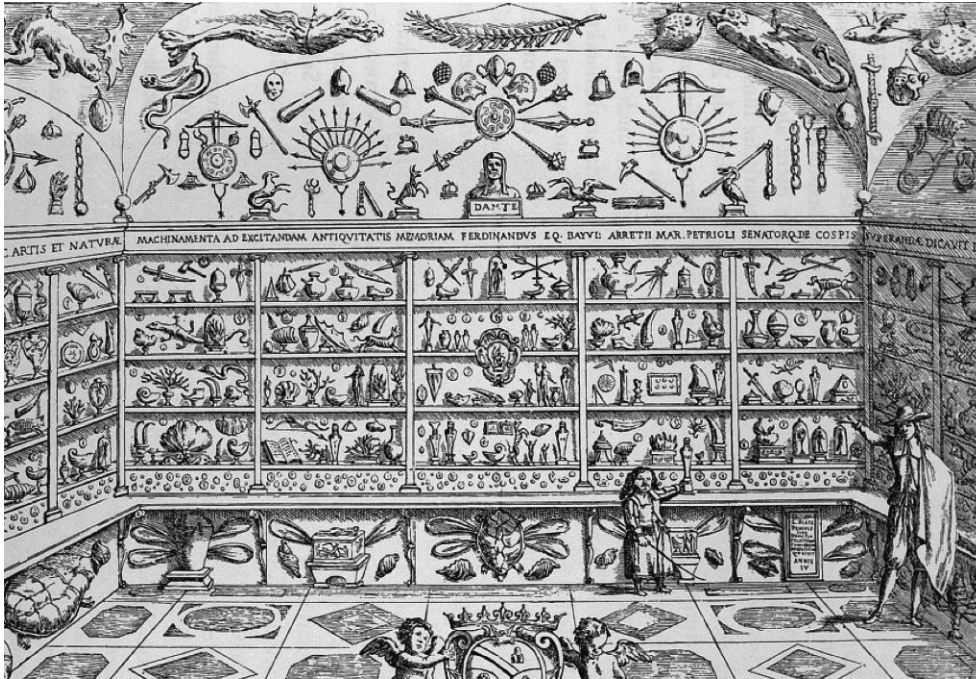 DANTE
ARTIS ET NATVRÆ MACHINAMENTA AD EXCITANDAM ANTIQVITATIS MEMORIAM FERDINANDVS EQ. BAYVL: ARRETII MAR. PETRIOLI SENATORQ.DE COSPIS SVPERANDÆ DICAVIT